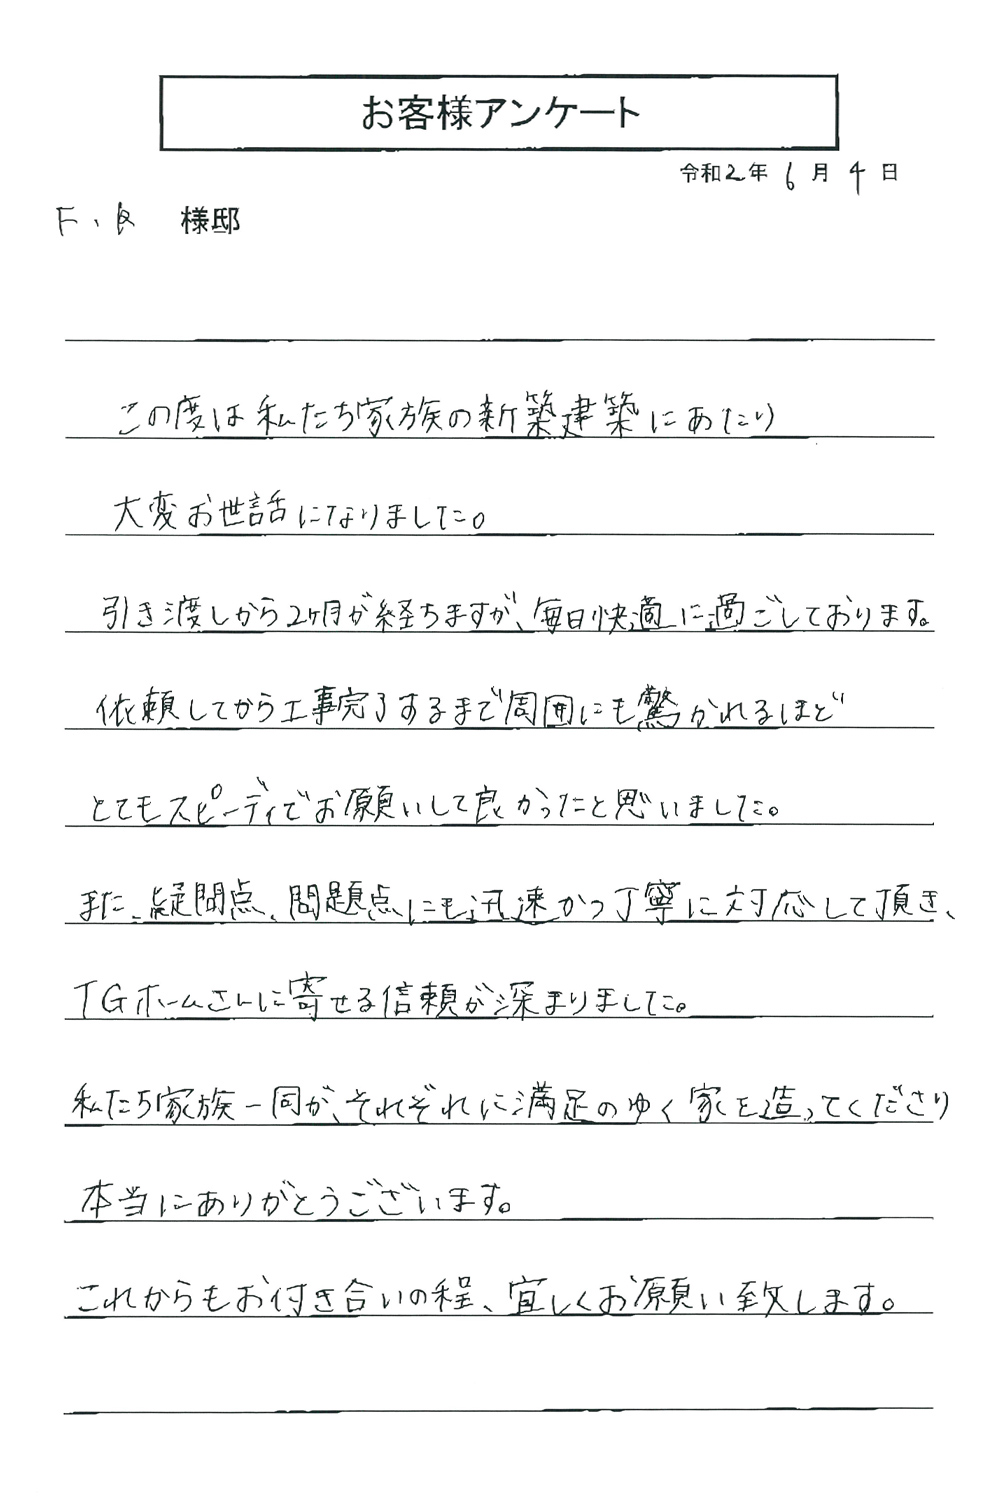 お客様アンケート
令和2年 6月 4日
F、R 様邸
この度は私たち家族の新築建築にあたり
大変お世話になりました。
引き渡しから2ヶ月が経ちますが、毎日快適に過ごしております。
依頼してから工事完了するまで周囲にも驚かれるほど
とてもスピーディでお願いして良かったと思いました。
また、疑問点、問題点にも迅速かつ丁寧に対応して頂き、
TGホームさんに寄せる信頼が深まりました。
私たち家族一同が、それぞれに満足のゆく家を造ってくださり
本当にありがとうございます。
これからもお付き合いの程、宜しくお願い致します。